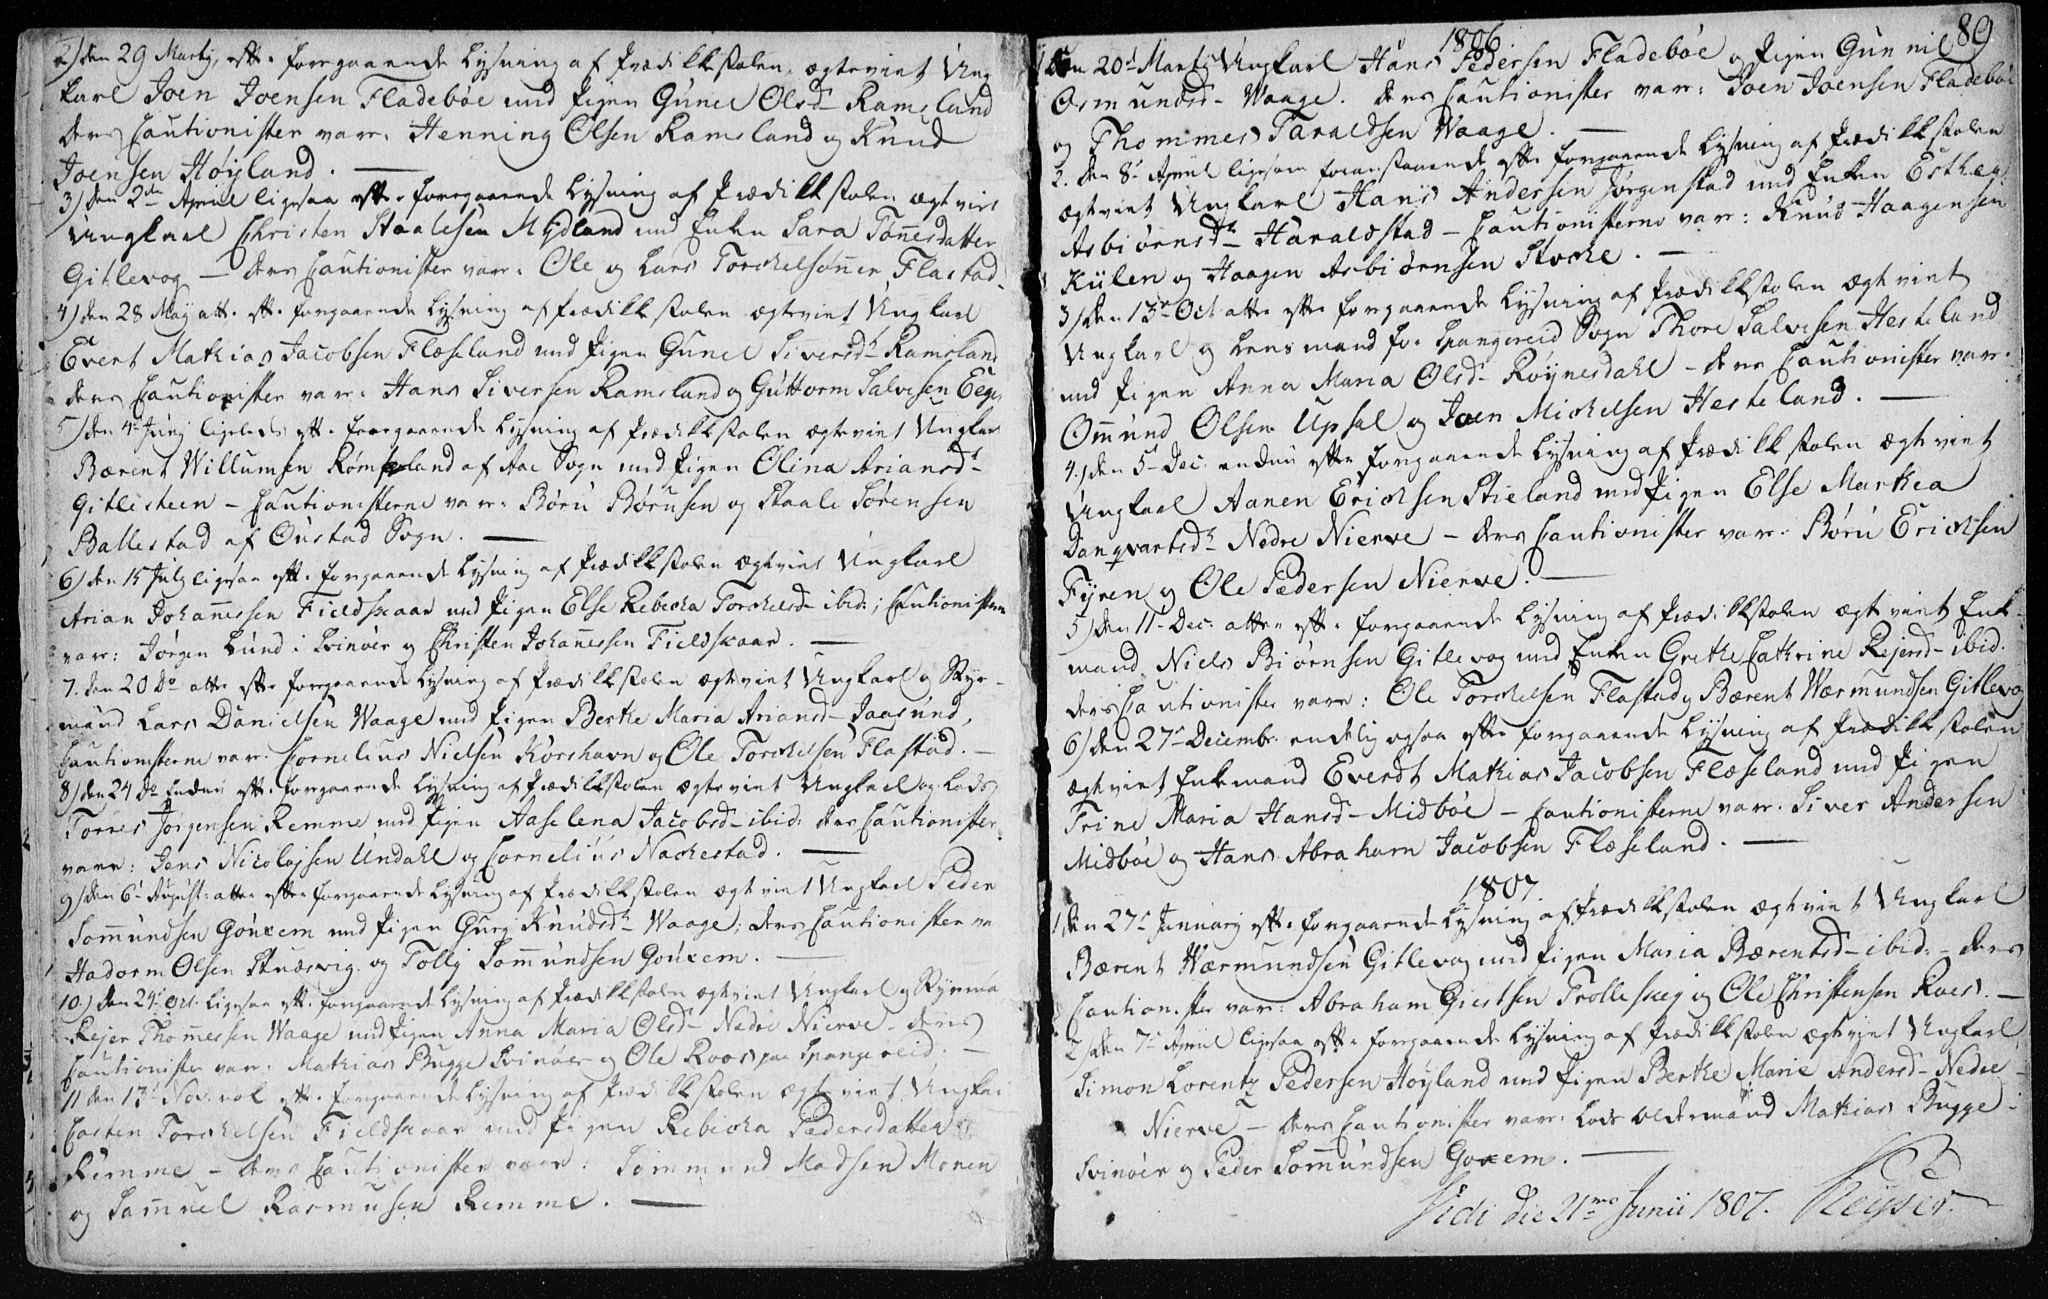 2) den 29 Martij, efter foregaaende lysning af Prædikkestolen, ægteviet Ung
karl Joen Joensen Fladebøe med Pigen Gunel Olsd- Ramsland
deres Cautionister vare: Henning Olsen Ramsland og Knud
Joensen Høyland. —
3) den 2den April ligesaa efter foregaaende lysning af Prædikkestolen ægtviet
Ungkarl Christen Staalesen Mydland med Enken Sara Tønnesdatter
Gitlevog — deres Cautionister var: Ole og Lars Torkelsønner Flastad.
4) den 28 Maij atter efter foregaaende lysning af Prædikkestolen ægteviet Ungkarl
Evert Mathias Jacobsen Flæseland med Pigen Gunel Siversdr Ramsland
deres Cautionister vare: Hans Siversen Ramsland og Guttorm Salvesen Eege
5) den 4de Junij ligeledes efter foregaaende lysning af Prædikkestolen ægteviet Ungkar
Bærent Willumsen Rømesland af Aae Sogn med Pigen Olina Ariansdr
Gitlesteen — Cautionisterne var: Børu Børusen og Staale Sørensen
Ballestad af Øustad Sogn. —
6) den 15 Julij ligesaa efter foregaaende lysning af Prædikkestolen ægteviet Ungkarl
Arian Johannessen Fieldskaar med Pigen Else Rebecka Torkelsd- ibid:; Cautionisterne
vare: Jørgen Lund i Svinøer og Christen Johannessen Fieldskaar. —
7. den 20 Do atter efter foregaaende lysning af Prædikkestolen ægteviet Ungkarl og Styr-
mand Lars Danielsen Waage med Pigen Berthe Maria Ariansd- Jaasund,
Cautionisterne var: Cornelius Nielsen Korshavn og Ole Torkelsen Flastad. —
8) den 24 Do Endnu efter foregaaende lysning af Prædikkestolen ægteviet Ungkarl og Lods
Torres Jørgensen Remme med Pigen Aaselena Jacobsd- ibid: deres Cautionister
vare: Jens Nicolajsen Undahl og Cornelius Nackestad. —
9) den 6te August: atter efter foregaaende lysning af Prædikkestolen ægteviet Ungkarl Peder
Sommundsen Gouxem med Pigen Gurj Knudsdr Waage; deres Cautionister va
Hadorm Olsen Snuesvig og Tollj Sommundsen Gouxem. —
10.) den 24de Oct. ligesaa efter foregaaende lysning af Prædikkestolen ægteviet Ungkarl og Styrma
Rejer Thommessen Waage med Pigen Anna Maria Olsd- Nedre Nierve - deres
Cautionister var: Mathias Bugge Svinøer og Ole Roos paa Spangereid. —
11 den 13de Nov. efter foregaaende lysning af Prædikkestolen ægteviet Ungkar
Casten Torkelsen Fieldskaar med Pigen Rebecka Pedersdatter
Remme — deres Cautionister vare: Sommund Madsen Monen
og Samuel Rasmusen Remme. —
89
1806
1 den 20de Martij Ungkarl Hans Pedersen Fladebøe og Pigen Gunnil
Osmundsd- Waage. deres Cautionister var: Joen Joensen Fladebøe
og Thommes Taraldsen Waage. —
2. den 8de April ligesom foranstaaende efter foregaaende lysning af Prædikkestolen
ægteviet Ungkarl Hans Andersen Jørgenstad med Enken Esther
Asbiørnsdr Haraldstad — Cautionisterne var: Knud Haagensen
Kulen og Haagen Asbiørnsen Stocke. —
3) den 13de Oct. atter efter foregaaende lysning af Prædikkestolen ægteviet
Ungkarl og Lensmand for Spangereid Sogn Thore Salvesen Hesteland
med Pigen Anna Maria Olsd- Røynesdahl — deres Cautionister var:
Ommund Olsen Upsal og Joen Mickelsen Hesteland. —
4.) den 5te Dec: endnu efter foregaaende lysning af Prædikkestolen ægteviet
Ungkarl Aanen Ericksen Stieland med Pigen Else Marthea
Danqvartsdr Nedre Nierve — deres Cautionister var: Børu Ericksen
Fyren og Ole Pedersen Nierve. —
5) den 11te Dec: atter efter foregaaende lysning af Prædikkestolen ægteviet Enke-
mand Niels Biørnsen Gitlevog med Enken Grethe Cathrine Rejersd- ibid.
deres Cautionister vare: Ole Torkelsen Flastad og Bærent Wærmundsen Gitlevog
6) den 27de Decembr: endelig ogsaa efter foregaaende lysning af Prædikkestolen
ægteviet Enkemand Everdt Mathias Jacobsen Flæseland med Pigen
Trine Maria Hansd- Midbøe — Cautionisterne var: Siver Andersen
Midbøe og Hans Abraham Jacobsen Flæseland. —
1807
1, den 27de Januarij efter foregaaende lysning af Prædikkestolen ægteviet Ungkarl
Bærent Wærmundsen Gitlevog med Pigen Maria Bærentsd- ibid: - deres
Cautionister var: Abraham Giertsen Trolleskeg og Ole Christensen Roes. —
2) den 7de April ligesaa efter foregaaende lysning af Prædikkestolen ægteviet Ungkarl
Simon Lorentz Pedersen Høyland med Pigen Berthe Marie Andersd- Nedre
Nierve — deres Cautionister vare: Lods oldermand Mathias Bugge
Svinøer og Peder Sommundsen Goxem. —
Vidi die 21mo Junii 1807. Keyser.